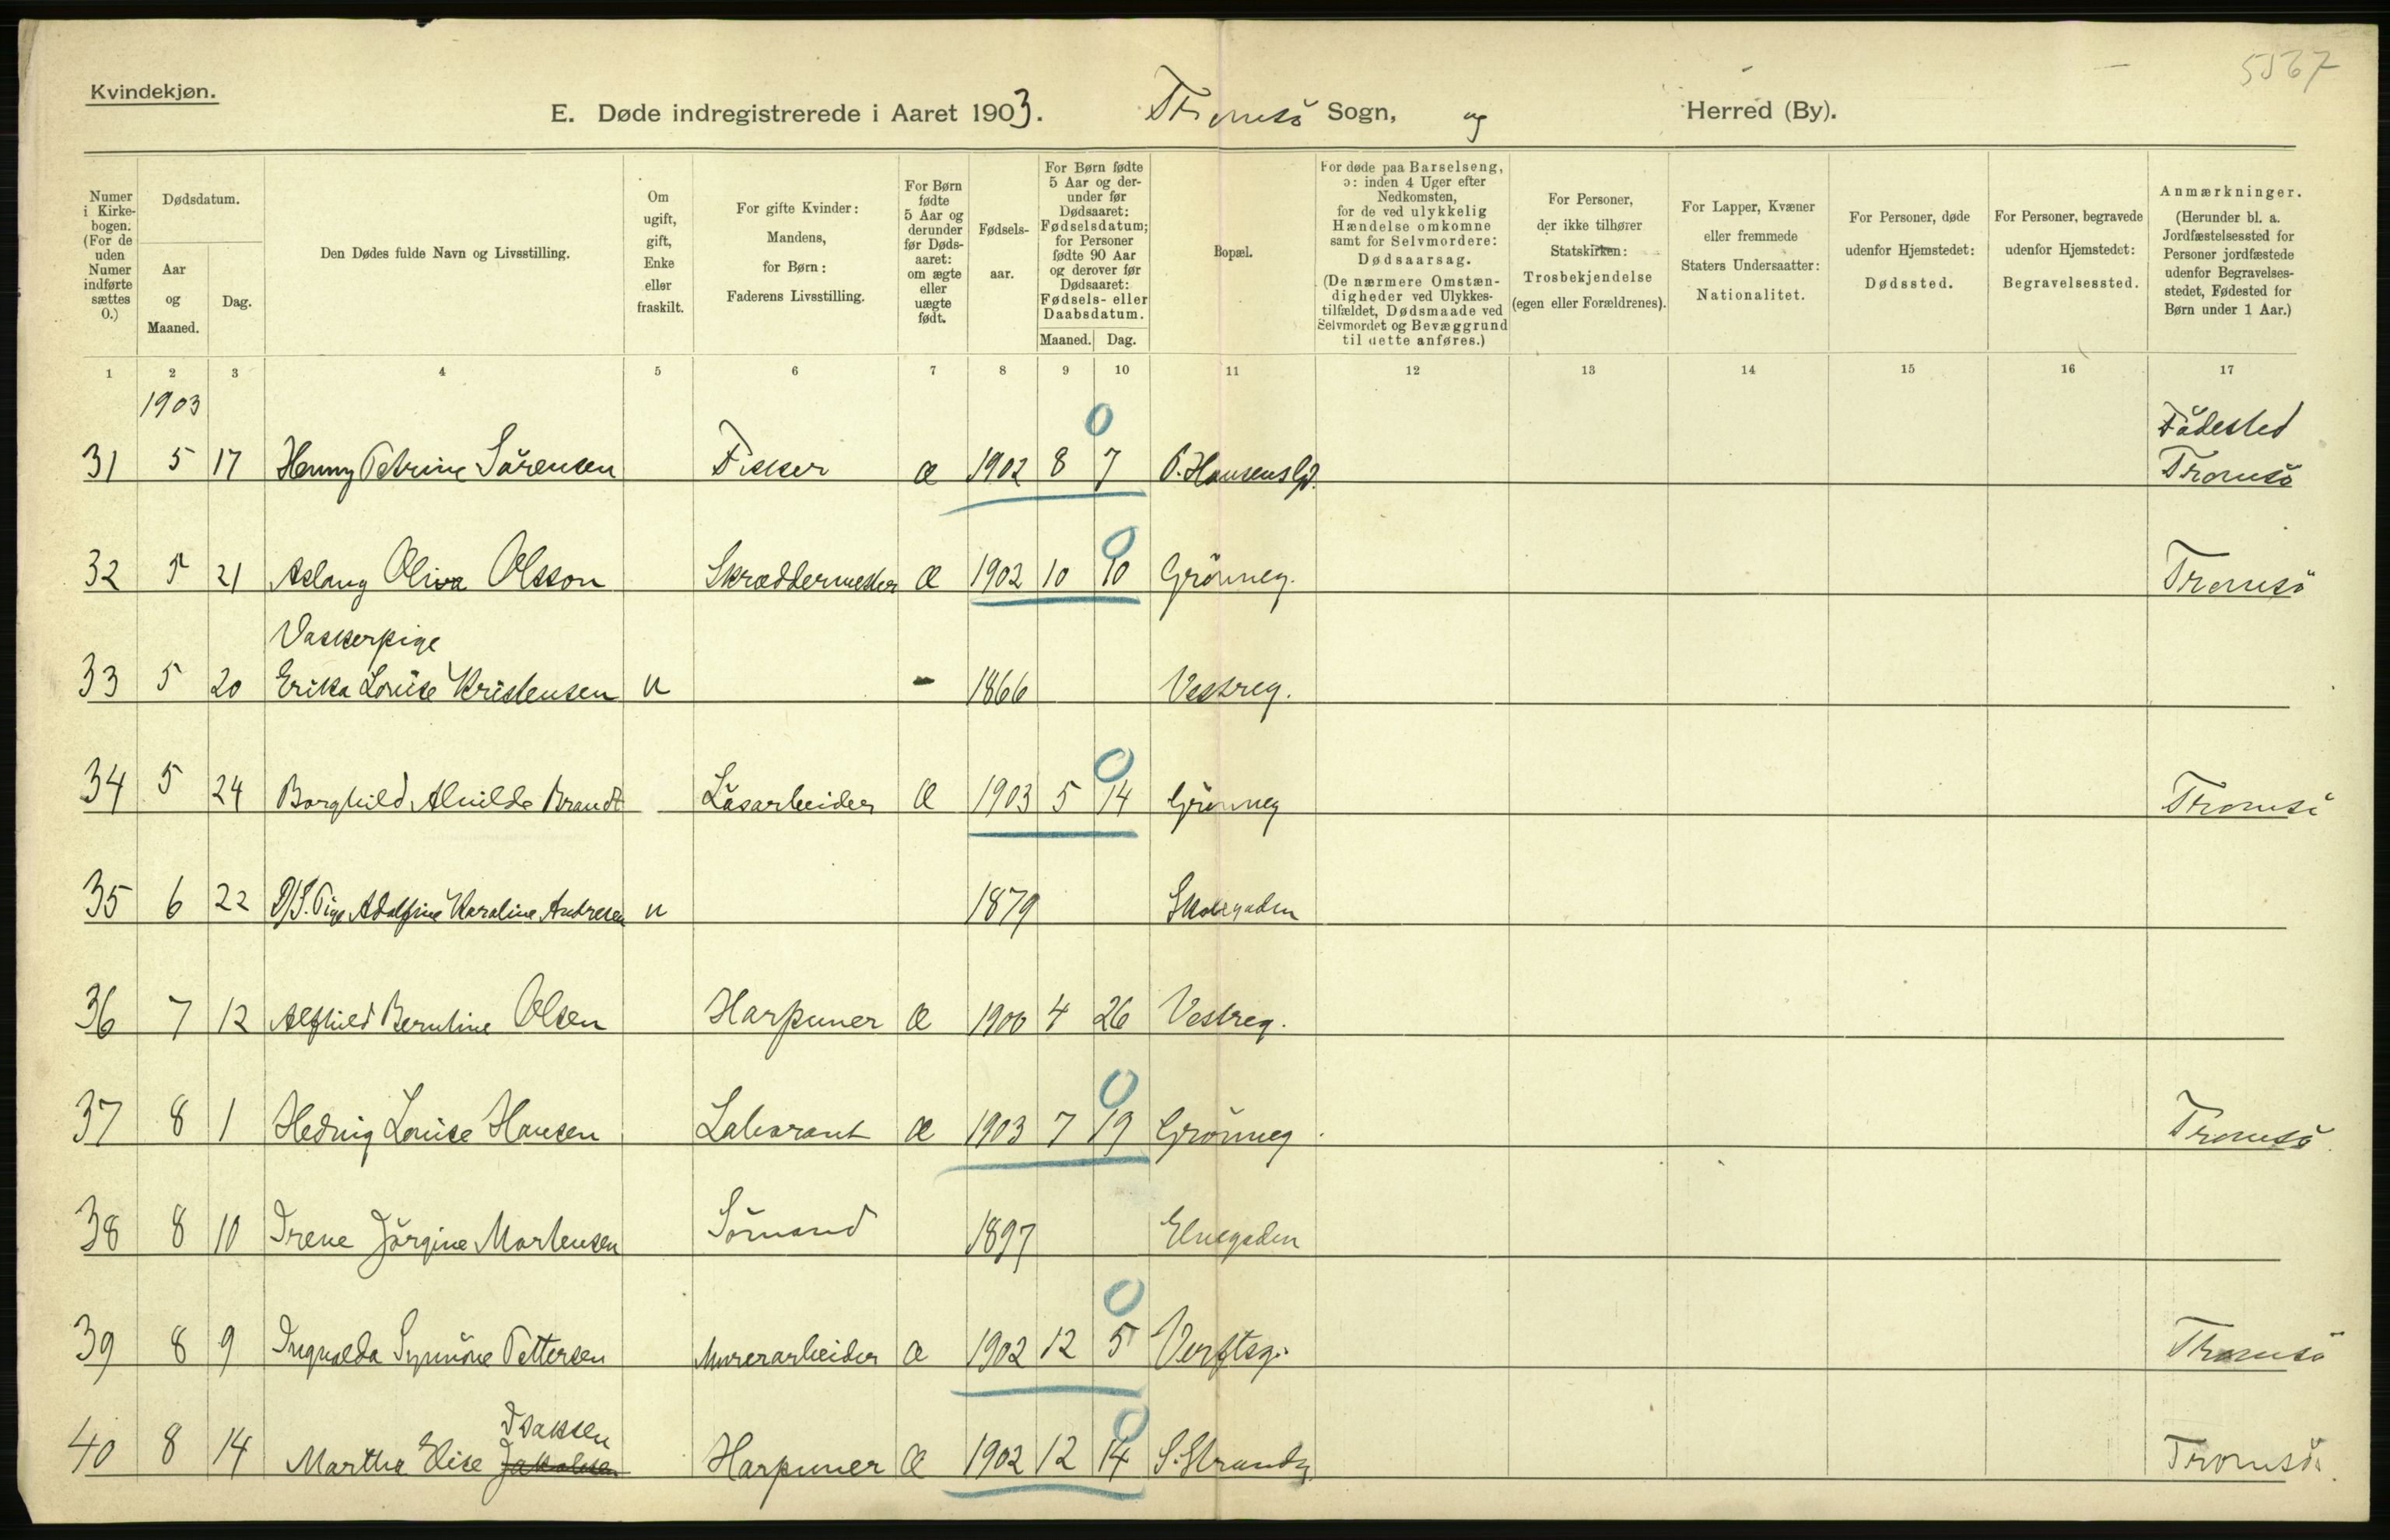 5567
Kvindekjøn.
E. Døde indregistrerede i Aaret 1903. Tromsö Sogn, og Herred (By).
Numer i Kirkebogen. (For de uden Numer indførte sættes 0.)
Dødsdatum.
Aar og Maaned.
Dag.
Den Dødes fulde Navn og Livsstilling.
Om ugift, gift, Enke eller fraskilt.
For gifte Kvinder: Mandens, for Børn: Faderens Livsstilling.
For Børn fødte 5 Aar og derunder før Dødsaaret: om ægte eller uægte født.
Fødselsaar.
For Børn fødte 5 Aar og derunder før Dødsaaret: Fødselsdatum; for Personer fødte 90 Aar og derover før Dødsaaret: Fødsels- eller Daabsdatum.
Maaned. Dag.
Bopæl.
For døde paa Barselseng, ɔ: inden 4 Uger efter Nedkomsten, for de ved ulykkelig Hændelse omkomne samt for Selvmordere: Dødsaarsag. (De nærmere Omstændigheder ved Ulykkestilfældet, Dødsmaade ved Selvmordet og Bevæggrund til dette anføres.)
For Personer, der ikke tilhører Statskirken: Trosbekjendelse (egen eller Forældrenes).
For Lapper, Kvæner eller fremmede Staters Undersaatter: Nationalitet.
For Personer, døde udenfor Hjemstedet: Dødssted.
For Personer, begravede udenfor Hjemstedet: Begravelsessted.
Anmærkninger. (Herunder bl. a. Jordfæstelsessted for Personer jordfæstede udenfor Begravelsesstedet, Fødested for Børn under 1 Aar.)
1 2 3 4 5 6 7 8 9 10 11 12 13 14 15 16 17
1903
0 Födested
31 5 17 Henny Petrine Sörensen Fisker æ 1902 8 7 P. Hansensgd. Tromsö
0
32 5 21 Aslaug Oliva Olsson Skræddermester Æ 1902 10 10 Grönneg. Tromsö
Vaskerpige
33 5 20 Erika Louise Kristensen u - 1866 Vestreg.
0
34 5 24 Borghild Alvilde Brandt Lösarbeider Æ 1903 5 14 Grönneg Tromsö
35 6 22 D/S. Pige Adolfine Karoline Andresen u 1879 Skolegaden
36 7 12 Alfhild Berntine Olsen Harpuner Æ 1900 4 26 Vestreg.
0
37 8 1 Hedvig Louise Hansen Laborant æ 1903 7 19 Grönneg. Tromsö
38 8 10 Irene Jörgine Mortensen Sömand 1897 Elvegaden
0
39 8 9 Ingvalda Synnöve Pettersen Murerarbeider æ 1902 12 5 Verftsg. Tromsö
Isaksen 0
40 8 14 Martha Elise Jakobsen Harpuner Æ 1902 12 14 S. Strandg. Tromsö.